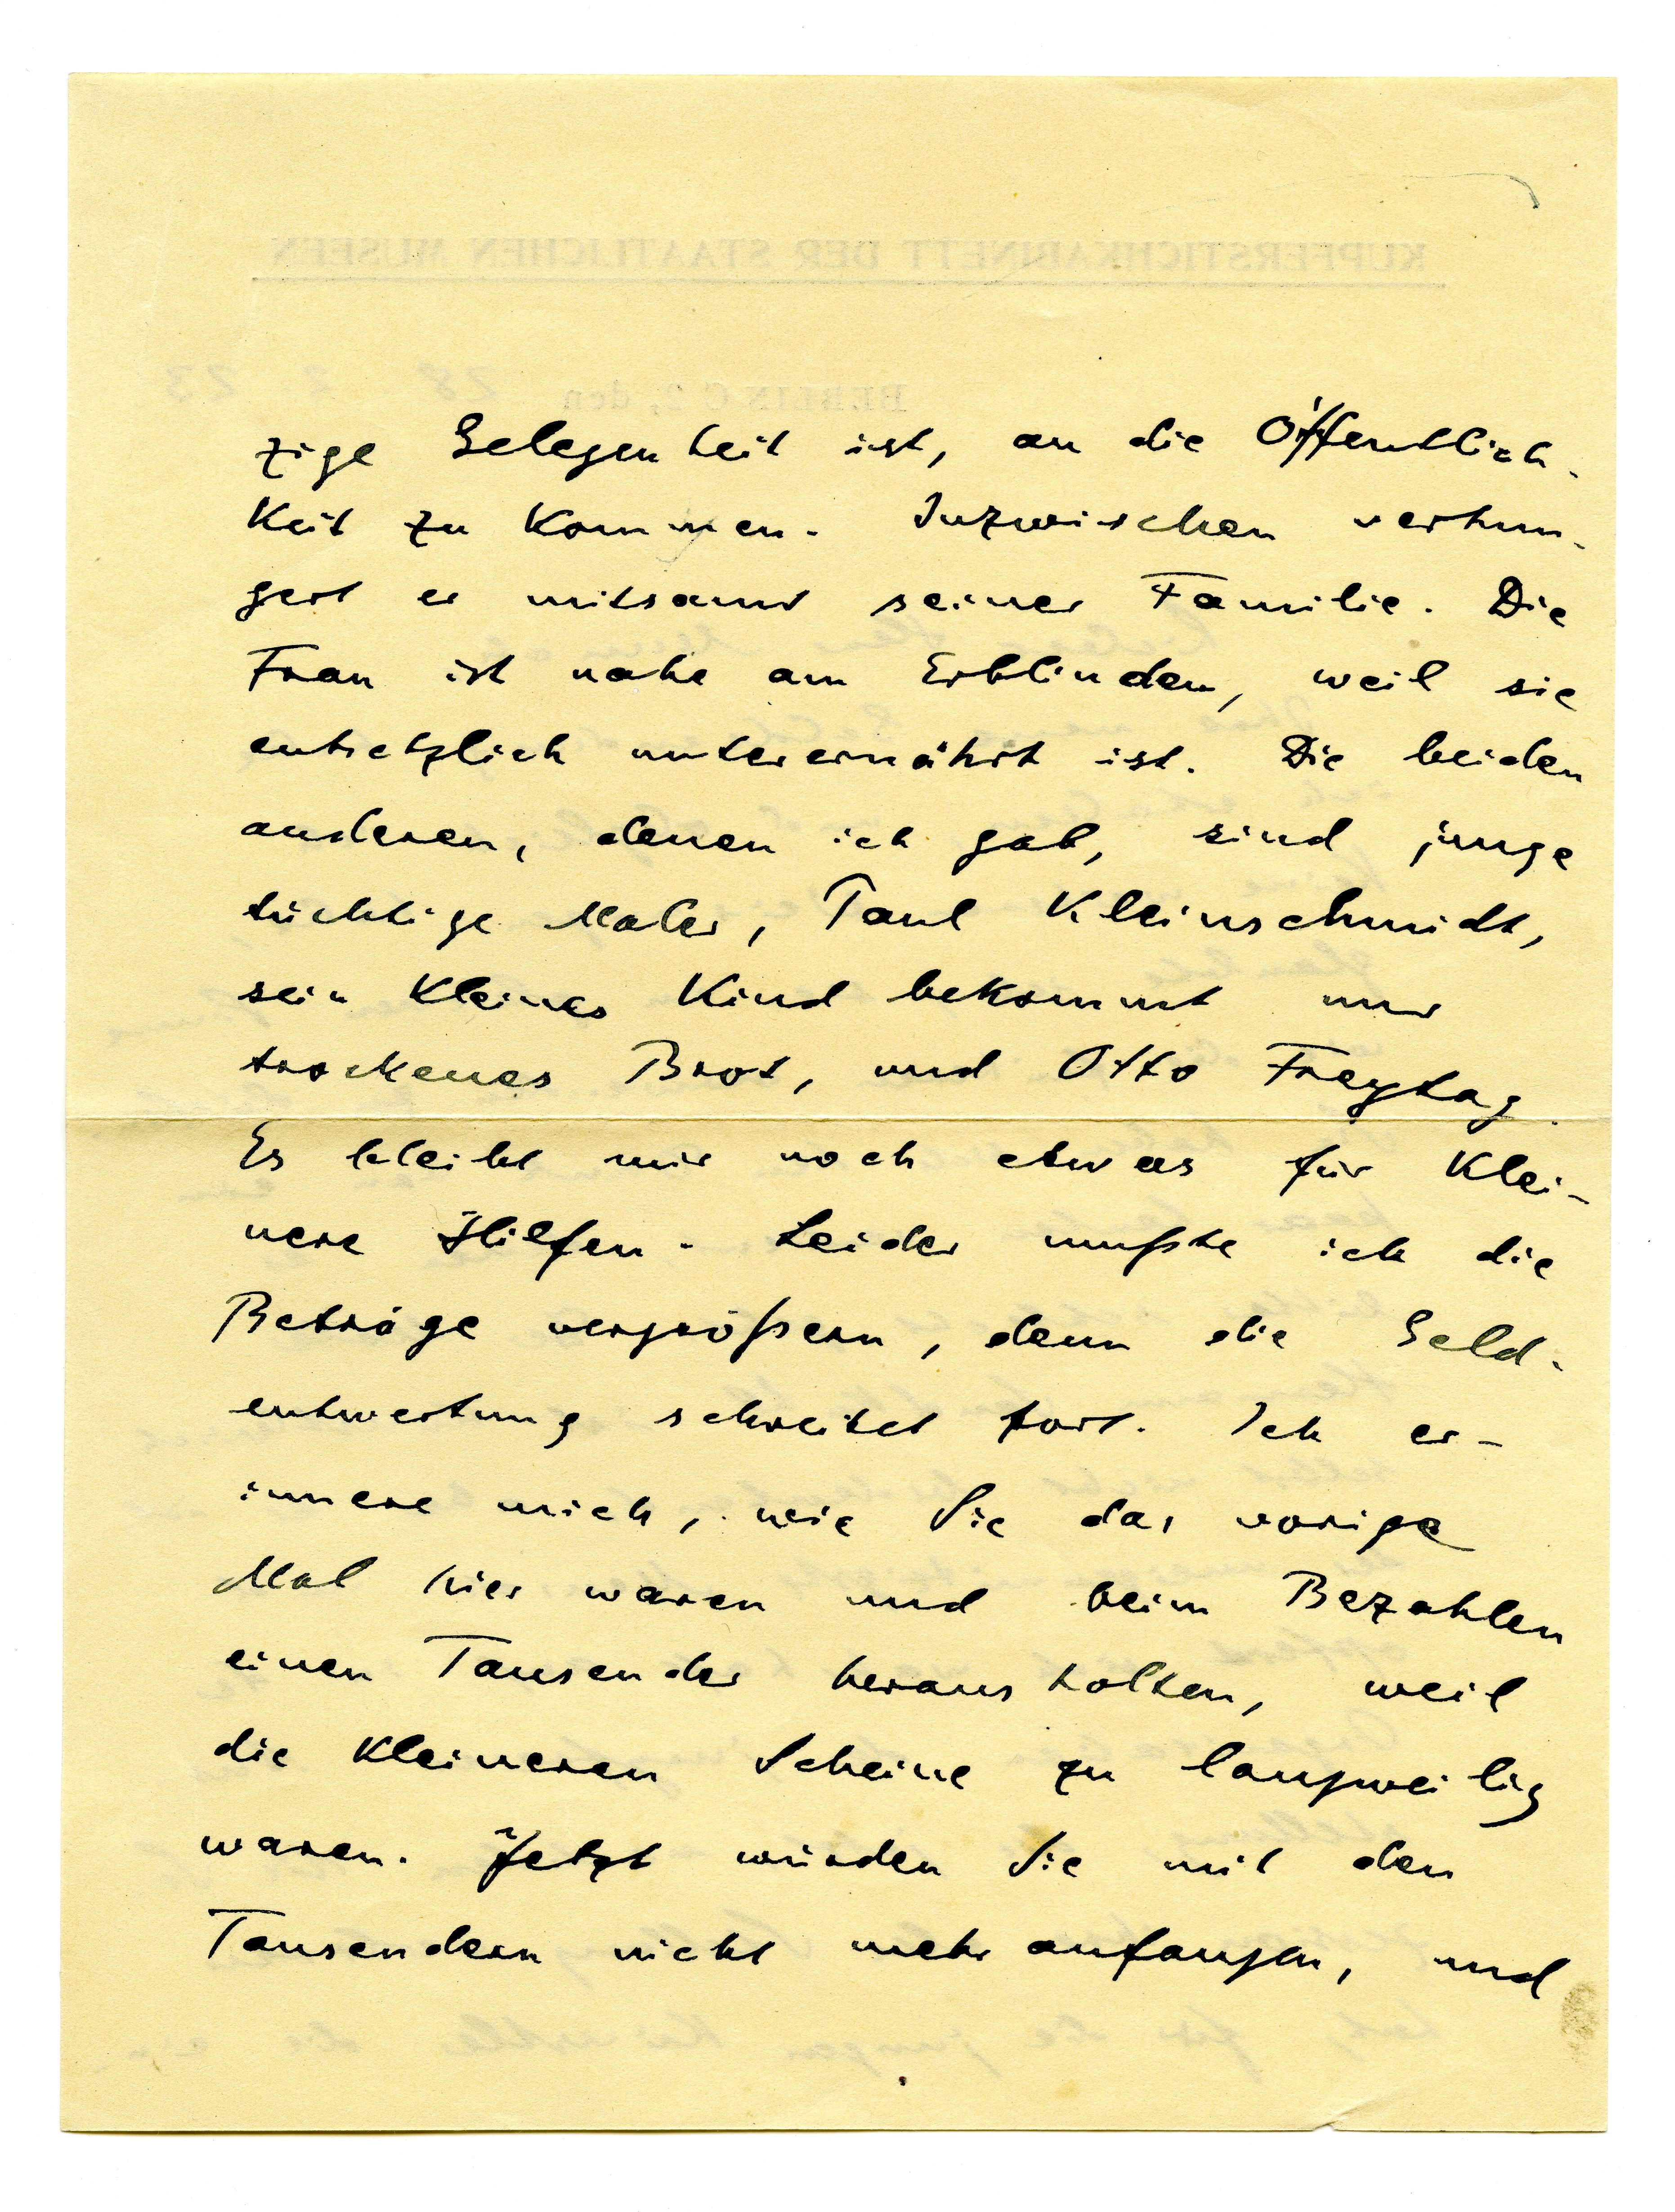 zige Gelegenheit ist, an die Öffentlich-
keit zu kommen. Inzwischen verhun-
gert er mitsamt seiner Familie. Die
Frau ist nahe am Erblinden, weil sie
entsetzlich unterernährt ist. Die beiden
anderen, denen ich gab, sind junge
tüchtige Maler, Paul Kleinschmidt,
sein kleines Kind bekommt nur
trockenes Brot, und Otto Freytag.
Es bleibt mir noch etwas für klei-
nere Hilfen. Leider mußte ich die
Beträge vergrößern, denn die Geld-
entwertung schreitet fort. Ich er-
innere mich, wie Sie das vorige
Mal hier waren und beim Bezahlen
einen Tausender heraus holten, weil
die kleineren Scheine zu langweilig
waren. Jetzt würden Sie mit den
Tausendern nicht mehr anfangen, und
KUPFERSTICHKABINETT DER STAATLICHEN MUSEEN
BERLIN C 2, den 28. 2. 23